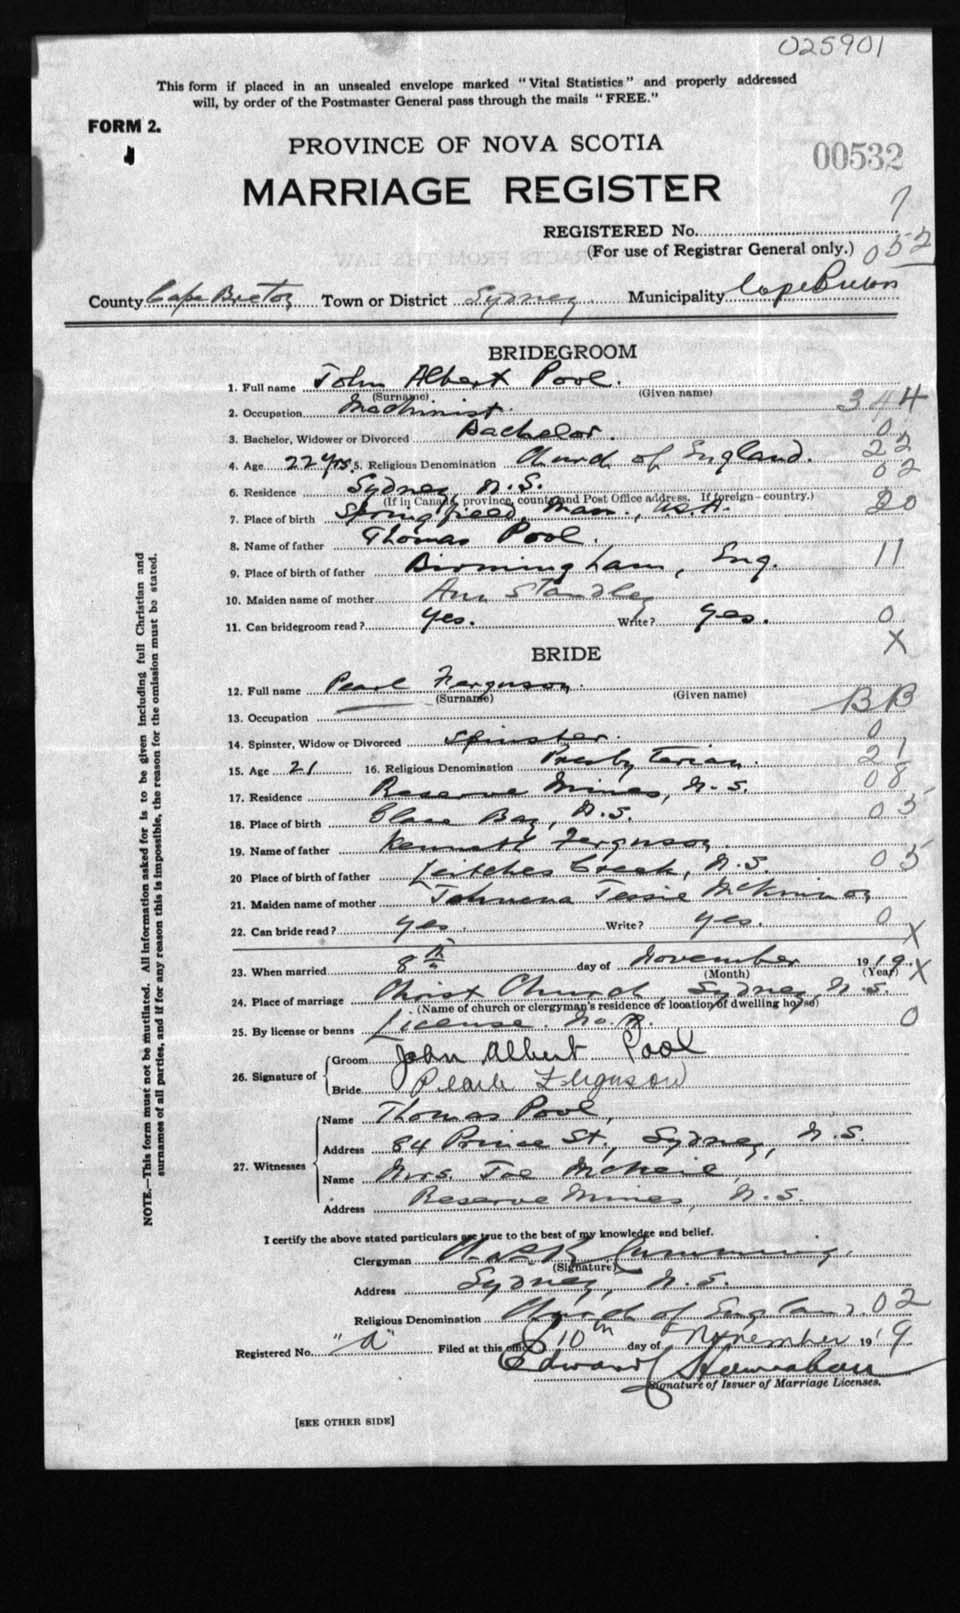 025901
This form if placed in an unsealed envelope marked "Vital Statistics" and properly addressed
will, by order of the Postmaster General pass through the mails "FREE."
FORM 2.
PROVINCE OF NOVA SCOTIA
00532
MARRIAGE REGISTER
REGISTERED No.
(For use of Registrar General only.) 052
County Cape Breton Town or District Sydney Municipality Cape Breton
BRIDEGROOM
1. Full name John Albert Pool.
(Surname) (Given name)
2. Occupation Machinist. 344
3. Bachelor, Widower or Divorced Bachelor. 0
4. Age 22 yrs. 5. Religious Denomination Church of England. 22
02
6. Residence Sydney, N.S.
(If in Canada, province, county and Post Office address. If foreign - country.)
7. Place of birth Springfield, Mass., U.S.A. 20
8. Name of father Thomas Pool.
9. Place of birth of father Birmingham, Eng. 11
10. Maiden name of mother Ann Standley
11. Can bridegroom read? yes. Write? yes. 0
X
BRIDE
12. Full name Pearl Ferguson.
(Surname) (Given name)
13. Occupation BB
14. Spinster, Widow or Divorced Spinster. 0
15. Age 21 16. Religious Denomination Presbyterian. 21
17. Residence Reserve Mines, N.S. 08
18. Place of birth Glace Bay, N.S. 05
19. Name of father Kenneth Ferguson.
20 Place of birth of father Leitches Creek, N.S. 05
21. Maiden name of mother Tessie McKinnon
22. Can bride read? yes. Write? yes. 0
X
23. When married 8th day of November 1919. X
(Month) (Year)
24. Place of marriage Christ Church, Sydney, N.S.
(Name of church or clergyman's residence or location of dwelling house)
25. By license or banns License. No. A. 0
26. Signature of Groom John Albert Pool
Bride Pearle Ferguson
27. Witnesses Name Thomas Pool,
Address 84 Prince St., Sydney, N.S.
Name Mrs. Joe McNeil,
Address Reserve Mines, N.S.
I certify the above stated particulars are true to the best of my knowledge and belief.
Clergyman Cumming.
(Signature)
Address Sydney, N.S.
Religious Denomination Church of England. 02
Registered No. "A" Filed at this office 10th day of November 1919
Edward
Signature of Issuer of Marriage Licenses.
[SEE OTHER SIDE]
NOTE.—This form must not be mutilated. All information asked for is to be given including full Christian and
surnames of all parties, and if for any reason this is impossible, the reason for the omission must be stated.